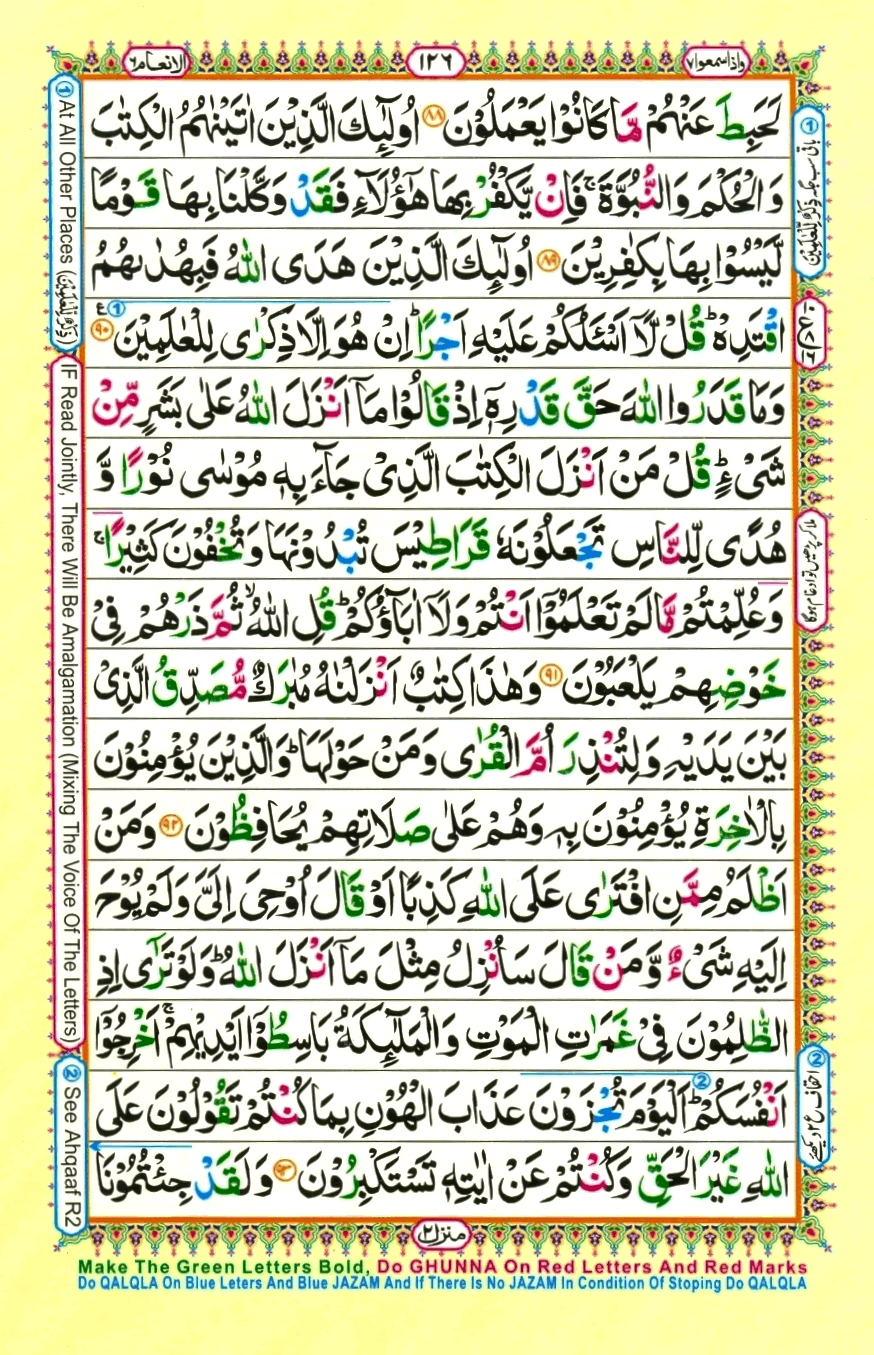 واذاسمعوا۷
۱۲۶
الانعام۶
لَحَبِطَ عَنْهُمْ مَّا كَانُوْا يَعْمَلُوْنَ ۸۸ اُولٰٓئِكَ الَّذِيْنَ اٰتَيْنٰهُمُ الْكِتٰبَ
وَالْحُكْمَ وَالنُّبُوَّةَ ۚ فَاِنْ يَّكْفُرْ بِهَا هٰٓؤُلَآءِ فَقَدْ وَكَّلْنَا بِهَا قَوْمًا
لَّيْسُوْا بِهَا بِكٰفِرِيْنَ ۸۹ اُولٰٓئِكَ الَّذِيْنَ هَدَى اللّٰهُ فَبِهُدٰىهُمُ
اقْتَدِهْ ؕ قُلْ لَّاۤ اَسْـَٔلُكُمْ عَلَيْهِ اَجْرًا ؕ اِنْ هُوَ اِلَّا ذِكْرٰى لِلْعٰلَمِيْنَ ۹۰
وَمَا قَدَرُوا اللّٰهَ حَقَّ قَدْرِهٖۤ اِذْ قَالُوْا مَاۤ اَنْزَلَ اللّٰهُ عَلٰى بَشَرٍ مِّنْ
شَيْءٍ ؕ قُلْ مَنْ اَنْزَلَ الْكِتٰبَ الَّذِيْ جَآءَ بِهٖ مُوْسٰى نُوْرًا وَّ
هُدًى لِّلنَّاسِ تَجْعَلُوْنَهٗ قَرَاطِيْسَ تُبْدُوْنَهَا وَتُخْفُوْنَ كَثِيْرًا ۚ
وَعُلِّمْتُمْ مَّا لَمْ تَعْلَمُوْۤا اَنْتُمْ وَلَاۤ اٰبَآؤُكُمْ ؕ قُلِ اللّٰهُ ۙ ثُمَّ ذَرْهُمْ فِيْ
خَوْضِهِمْ يَلْعَبُوْنَ ۹۱ وَهٰذَا كِتٰبٌ اَنْزَلْنٰهُ مُبٰرَكٌ مُّصَدِّقُ الَّذِيْ
بَيْنَ يَدَيْهِ وَلِتُنْذِرَ اُمَّ الْقُرٰى وَمَنْ حَوْلَهَا ؕ وَالَّذِيْنَ يُؤْمِنُوْنَ
بِالْاٰخِرَةِ يُؤْمِنُوْنَ بِهٖ وَهُمْ عَلٰى صَلَاتِهِمْ يُحَافِظُوْنَ ۹۲ وَمَنْ
اَظْلَمُ مِمَّنِ افْتَرٰى عَلَى اللّٰهِ كَذِبًا اَوْ قَالَ اُوْحِيَ اِلَيَّ وَلَمْ يُوْحَ
اِلَيْهِ شَيْءٌ وَّمَنْ قَالَ سَاُنْزِلُ مِثْلَ مَاۤ اَنْزَلَ اللّٰهُ ؕ وَلَوْ تَرٰٓى اِذِ
الظّٰلِمُوْنَ فِيْ غَمَرٰتِ الْمَوْتِ وَالْمَلٰٓئِكَةُ بَاسِطُوْۤا اَيْدِيْهِمْ ۚ اَخْرِجُوْۤا
اَنْفُسَكُمْ ؕ اَلْيَوْمَ تُجْزَوْنَ عَذَابَ الْهُوْنِ بِمَا كُنْتُمْ تَقُوْلُوْنَ عَلَى
اللّٰهِ غَيْرَ الْحَقِّ وَكُنْتُمْ عَنْ اٰيٰتِهٖ تَسْتَكْبِرُوْنَ ۹۳ وَلَقَدْ جِئْتُمُوْنَا
منزل۲
① باقی سب جگہ ذِكْرٌ لِّلْعٰلَمِيْنَ
ملا کر پڑھیں تو ادغام ہوگا
② احقاف ع۲ دیکھئے
① At All Other Places (ذِكْرٌ لِّلْعٰلَمِيْنَ)
IF Read Jointly, There Will Be Amalgamation (Mixing The Voice Of The Letters)
② See Ahqaaf R2
Make The Green Letters Bold, Do GHUNNA On Red Letters And Red Marks
Do QALQLA On Blue Leters And Blue JAZAM And If There Is No JAZAM In Condition Of Stoping Do QALQLA